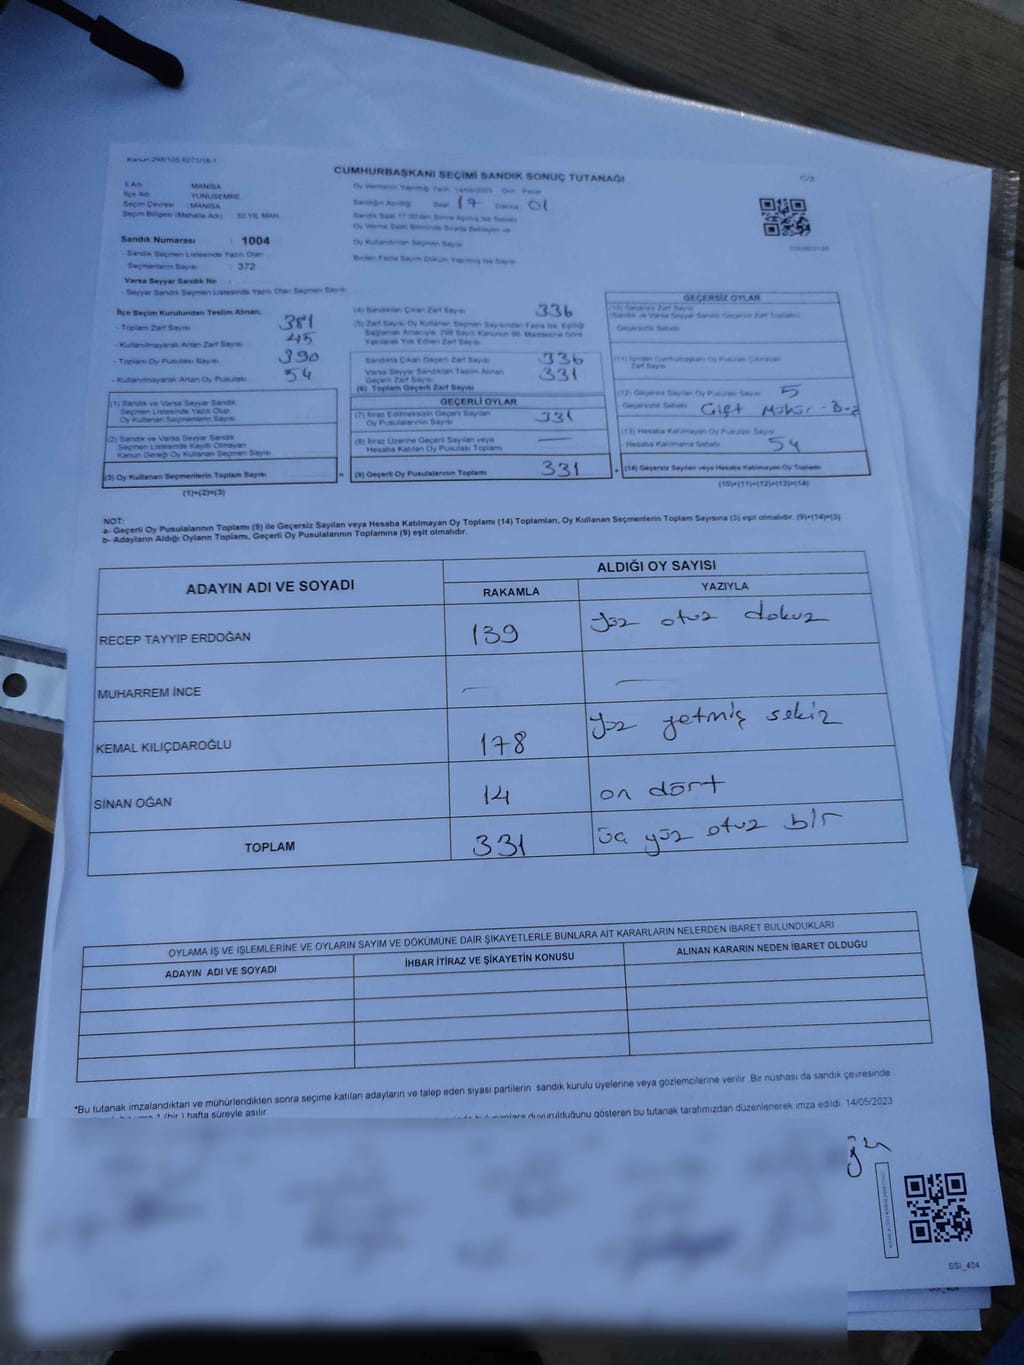 Kanun 298/105 6271/18-1
CUMHURBAŞKANI SEÇİMİ SANDIK SONUÇ TUTANAĞI
C/2
İl Adı : MANİSA
İlçe Adı : YUNUSEMRE
Seçim Çevresi : MANİSA
Seçim Bölgesi (Mahalle Adı) : 50.YIL MAH.
Sandık Numarası : 1004
- Sandık Seçmen Listesinde Yazılı Olan
Seçmenlerin Sayısı : 372
Varsa Seyyar Sandık No :
- Seyyar Sandık Seçmen Listesinde Yazılı Olan Seçmen Sayısı
İlçe Seçim Kurulundan Teslim Alınan;
- Toplam Zarf Sayısı 381
- Kullanılmayarak Artan Zarf Sayısı 45
- Toplam Oy Pusulası Sayısı 390
- Kullanılmayarak Artan Oy Pusulası 54
(1) Sandık ve Varsa Seyyar Sandık
Seçmen Listesinde Yazılı Olup
Oy Kullanan Seçmenlerin Sayısı
(2) Sandık ve Varsa Seyyar Sandık
Seçmen Listesinde Kayıtlı Olmayan
Kanun Gereği Oy Kullanan Seçmen Sayısı
(3) Oy Kullanan Seçmenlerin Toplam Sayısı
(1)+(2)=(3)
Oy Vermenin Yapıldığı Tarih 14/05/2023 Gün Pazar
Sandığın Açıldığı Saat 17 Dakika 01
Sandık Saat 17:00'den Sonra Açılmış İse Sebebi
Oy Kullandırılan Seçmen Sayısı
Birden Fazla Sayım Döküm Yapılmış İse Sayısı
(4) Sandıktan Çıkan Zarf Sayısı 336
(5) Zarf Sayısı Oy Kullanan Seçmen Sayısından Fazla İse, Eşitliği
Sağlamak Amacıyla, 298 Sayılı Kanunun 98. Maddesine Göre
Yakılarak Yok Edilen Zarf Sayısı
Sandıkta Çıkan Geçerli Zarf Sayısı 336
Varsa Seyyar Sandıktan Teslim Alınan
Geçerli Zarf Sayısı 331
(6) Toplam Geçerli Zarf Sayısı
GEÇERLİ OYLAR
(7) İtiraz Edilmeksizin Geçerli Sayılan
Oy Pusulalarının Sayısı 331
(8) İtiraz Üzerine Geçerli Sayılan veya
Hesaba Katılan Oy Pusulası Toplamı —
= (9) Geçerli Oy Pusulalarının Toplamı 331
GEÇERSİZ OYLAR
(10) Geçersiz Zarf Sayısı
(Sandık ve Varsa Seyyar Sandık Geçersiz Zarf Toplamı)
Geçersizlik Sebebi
(11) İçinden Cumhurbaşkanı Oy Pusulası Çıkmayan
Zarf Sayısı
(12) Geçersiz Sayılan Oy Pusulası Sayısı 5
Geçersizlik Sebebi Çift Mühür
(13) Hesaba Katılmayan Oy Pusulası Sayısı
Hesaba Katılmama Sebebi 54
+ (14) Geçersiz Sayılan veya Hesaba Katılmayan Oy Toplamı
(10)+(11)+(12)+(13)=(14)
NOT:
a- Geçerli Oy Pusulalarının Toplamı (9) ile Geçersiz Sayılan veya Hesaba Katılmayan Oy Toplamı (14) Toplamları, Oy Kullanan Seçmenlerin Toplam Sayısına (3) eşit olmalıdır. (9)+(14)=(3)
b- Adayların Aldığı Oyların Toplamı, Geçerli Oy Pusulalarının Toplamına (9) eşit olmalıdır.
ADAYIN ADI VE SOYADI
ALDIĞI OY SAYISI
RAKAMLA YAZIYLA
RECEP TAYYİP ERDOĞAN 139 Yüz otuz dokuz
MUHARREM İNCE — —
KEMAL KILIÇDAROĞLU 178 Yüz yetmiş sekiz
SİNAN OĞAN 14 on dört
TOPLAM 331 üç yüz otuz bir
OYLAMA İŞ VE İŞLEMLERİNE VE OYLARIN SAYIM VE DÖKÜMÜNE DAİR ŞİKAYETLERLE BUNLARA AİT KARARLARIN NELERDEN İBARET BULUNDUKLARI
ADAYIN ADI VE SOYADI İHBAR İTİRAZ VE ŞİKAYETİN KONUSU ALINAN KARARIN NEDEN İBARET OLDUĞU
*Bu tutanak imzalandıktan ve mühürlendikten sonra seçime katılan adayların ve talep eden siyasi partilerin sandık kurulu üyelerine veya gözlemcilerine verilir. Bir nüshası da sandık çevresinde
1 (bir) hafta süreyle asılır.
bulunanlara duyurulduğunu gösteren bu tutanak tarafımızdan düzenlenerek imza edildi. 14/05/2023
SSI_404